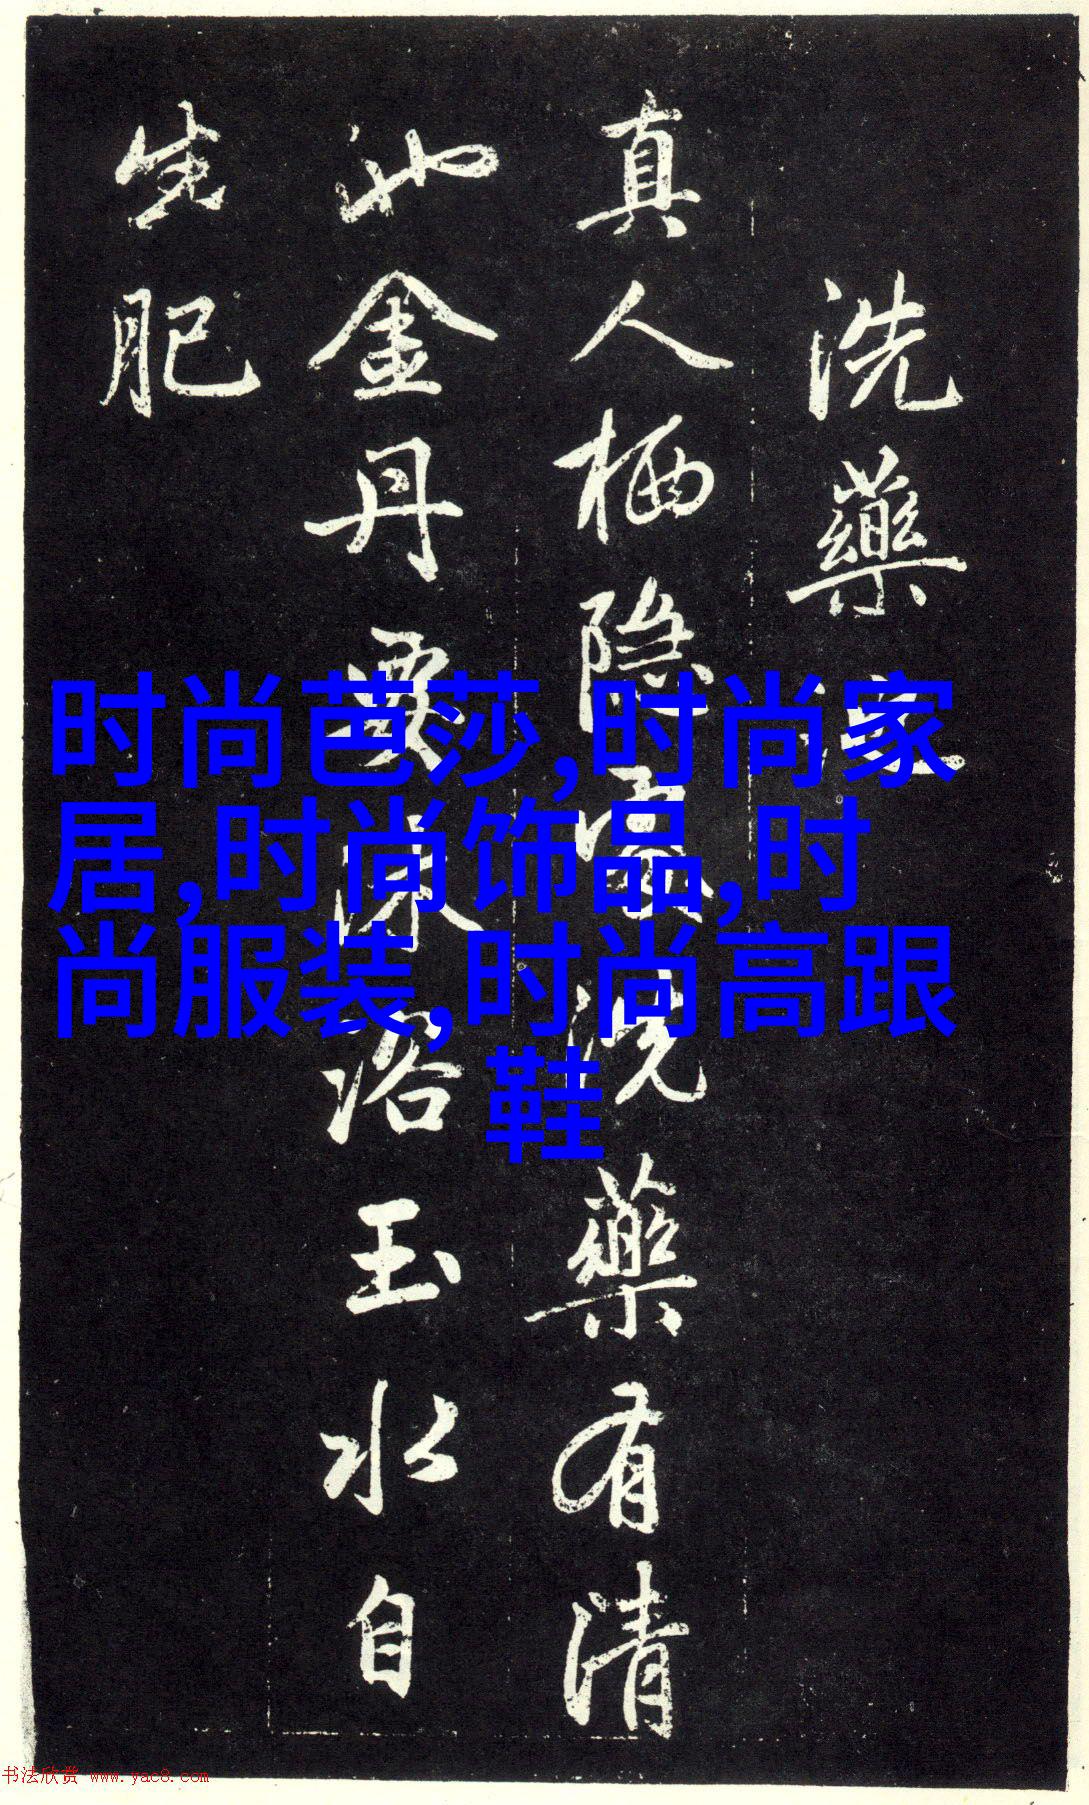 洗藥池
真人栖隐處洗藥有清
池金丹要沐浴玉水自
生肥
时尚芭莎,时尚家
居,时尚饰品,时
尚服装,时尚高跟
鞋
书法欣赏 www.yac8.com